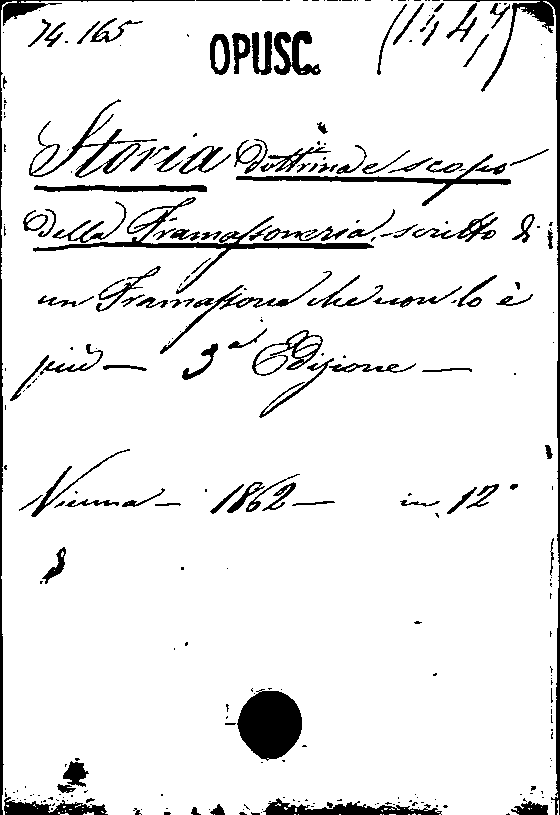 74.165 OPUSC.
Storia dottrina e scopo
della Framassoneria, scritto di
un Framassone che non lo è
più — 3ª Edizione —
Vienna — 1862 — in 12°